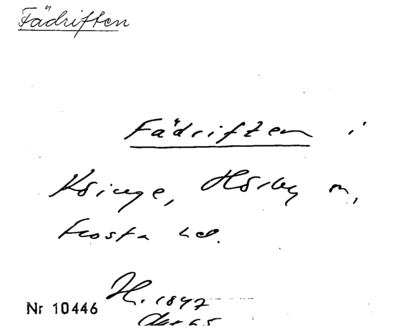 Fädriften
Fädriften i
Köinge, Hörby m,
Frosta hd.
Nr 10446 H. 1847